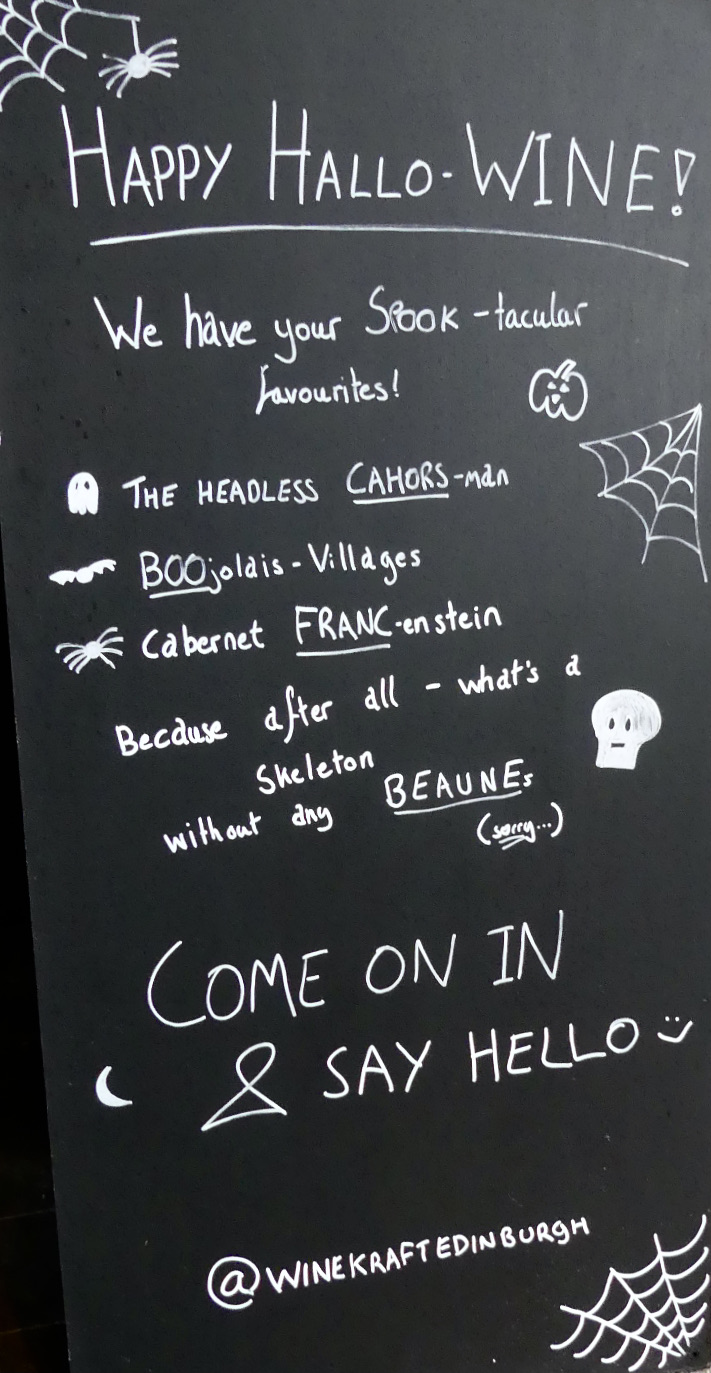 HAPPY HALLO-WINE!
We have your SPOOK-tacular
favourites!
THE HEADLESS CAHORS-man
BOOjolais-Villages
Cabernet FRANC-enstein
Because after all - what's a
Skeleton
without any BEAUNEs
(sorry...)
COME ON IN
& SAY HELLO
@WINEKRAFTEDINBURGH